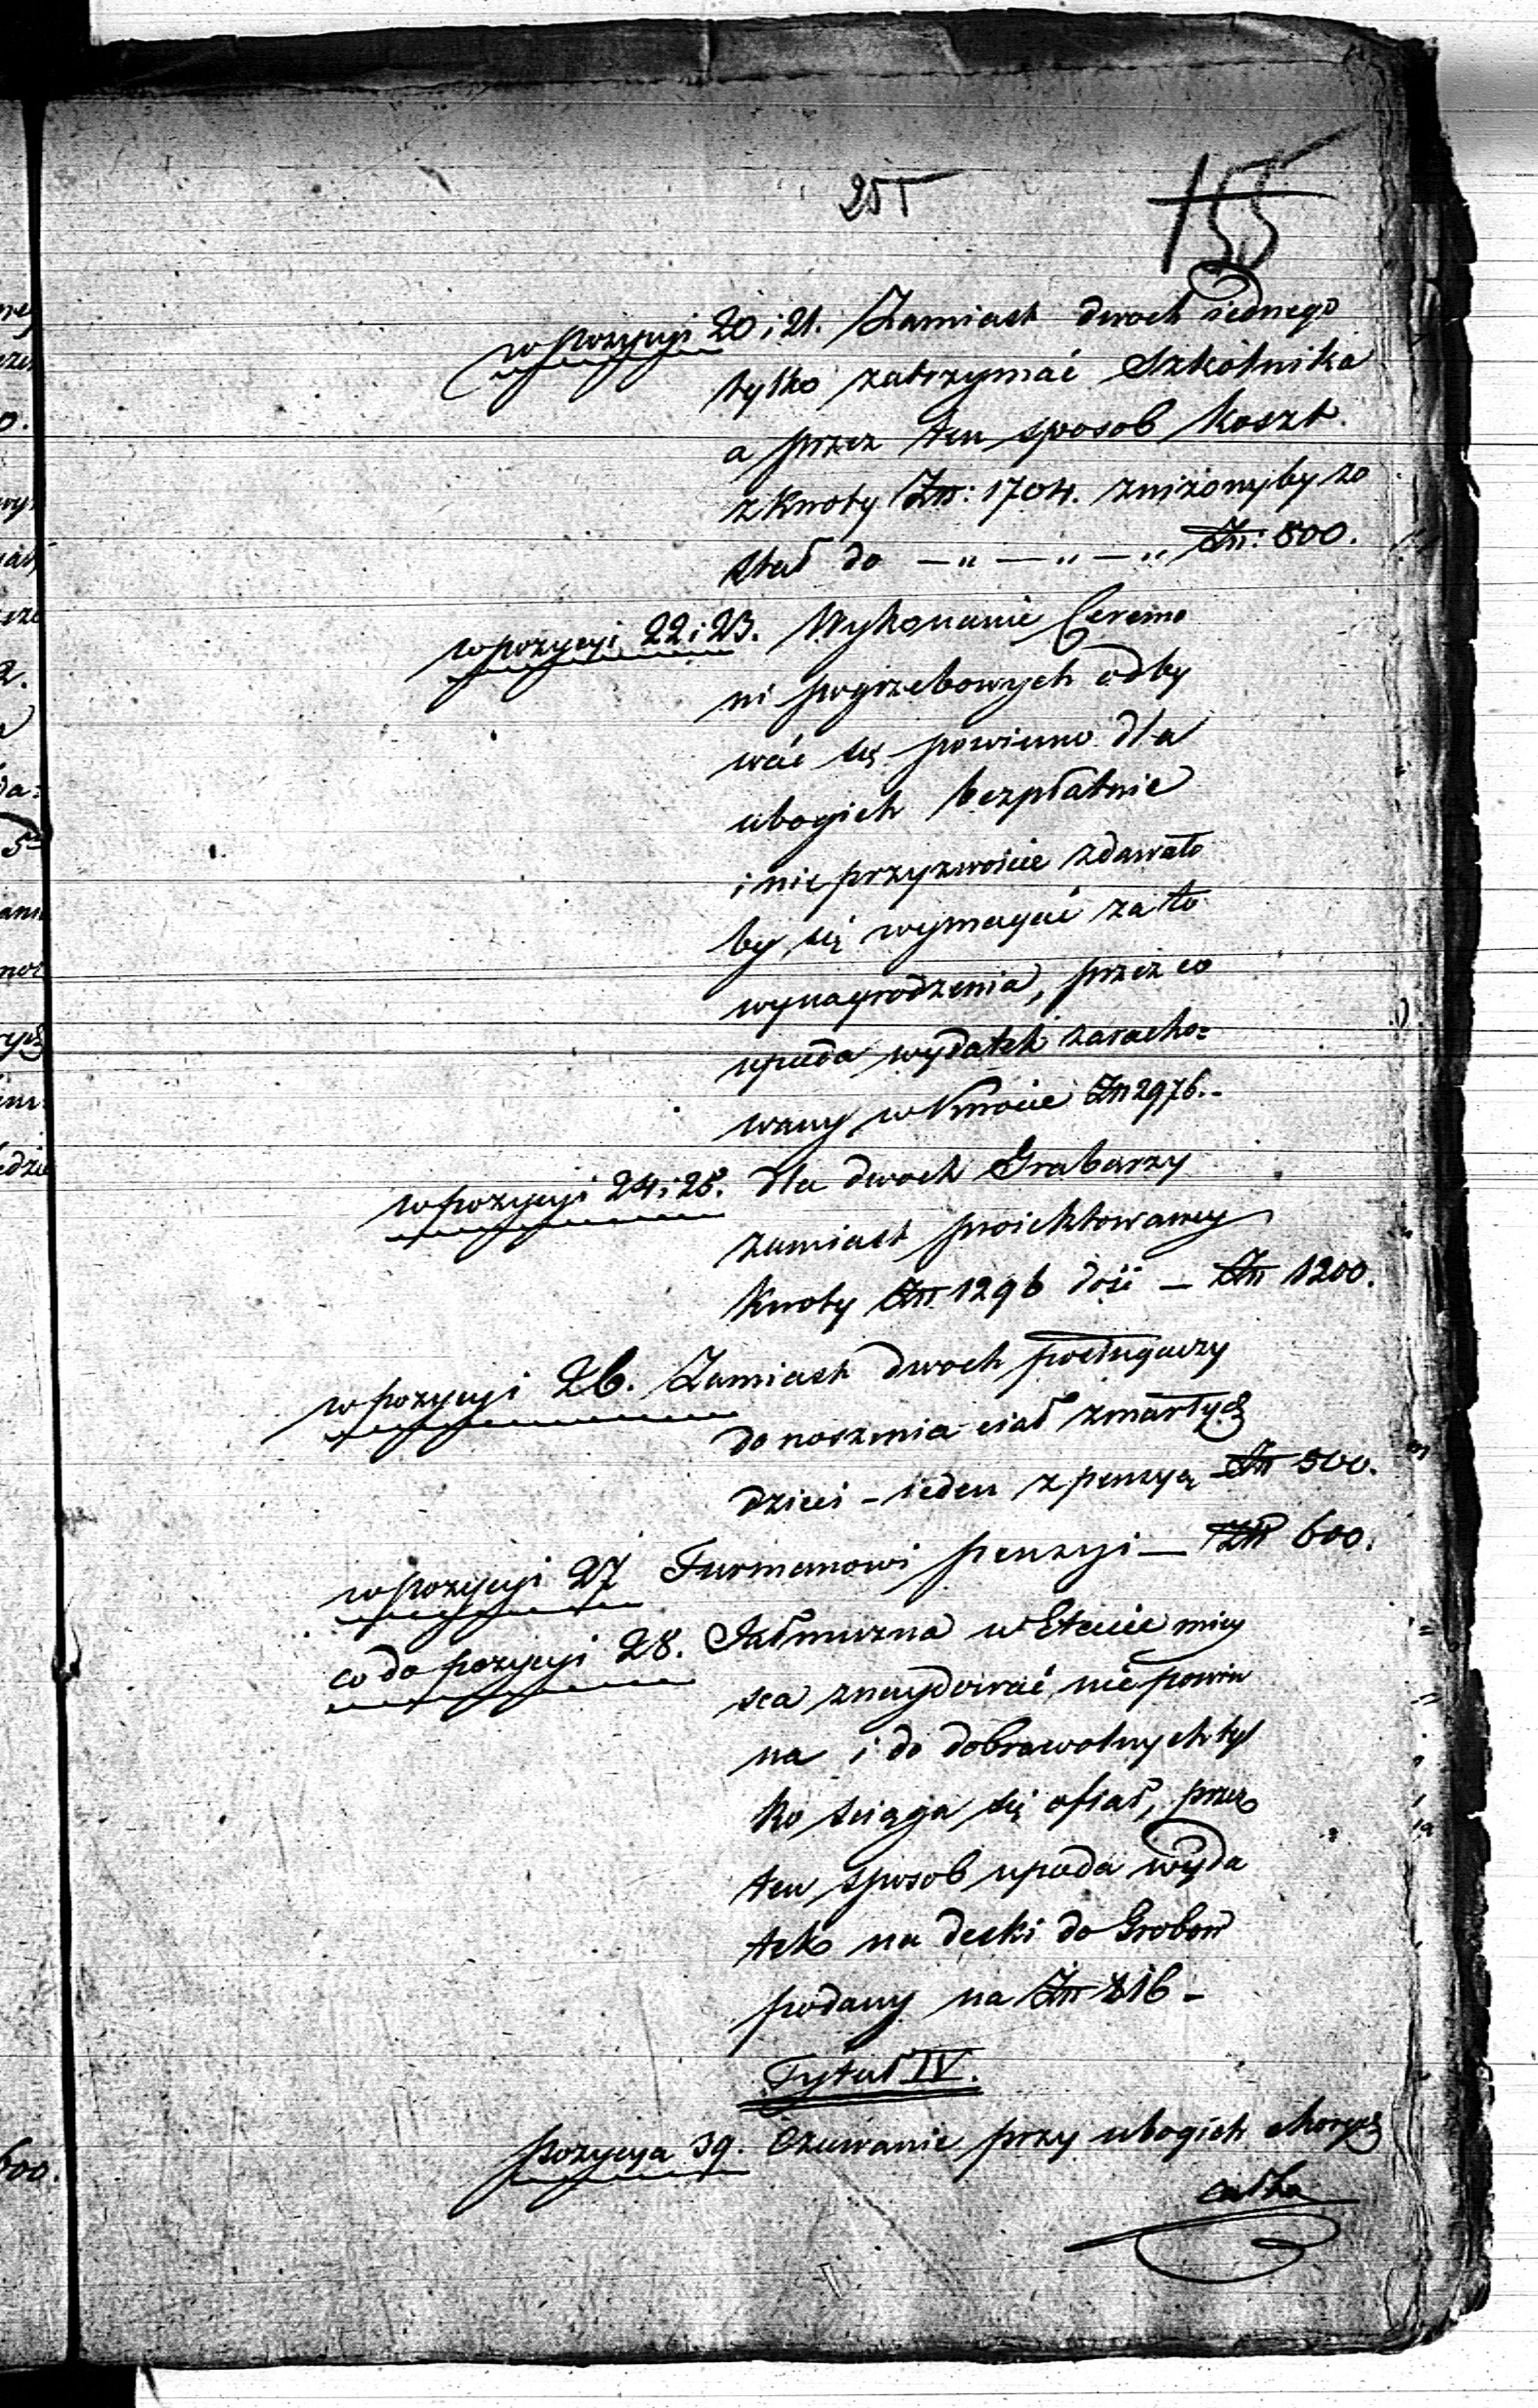 251
155
w pozycyi 20 i 21. Zamiast dwoch iednego
tylko zatrzymać Szkólnika
a przez ten sposob koszt
z kwoty Złł: 1704. zniżony by zo
stał do — " — " — " Złł: 800.
w pozycyi 22 i 23. Wykonanie Ceremo
ni pogrzebowych odby
wać się powinno dla
ubogich bezpłatnie
i nieprzyzwoicie zdawało
by się wymagać za to
wynagrodzenia, przez co
upada wydatek zaracho=
wany w kwocie Złł 2976.-
w pozycyi 24 i 25. dla dwoch Grabarzy
zamiast proiektowaney
kwoty Złł 1296 dość — Złł 1200.
w pozycyi 26. Zamiast dwoch posługaczy
do noszenia ciał zmarłych
dzieci - ieden z pensyą Złł 500.
w pozycyi 27 Furmanowi pensyi — Złł 600.
co do pozycyi 28. Jałmuzna w Etacie miey
sca znaydować nie powin
na i do dobrowolnych tyl
ko sciąga się ofiar, przez
ten sposob upada wyda
tek na deski do Grobow
podany na Złł 816 -
Tytuł IV.
pozycya 39. Czuwanie przy ubogich chorych